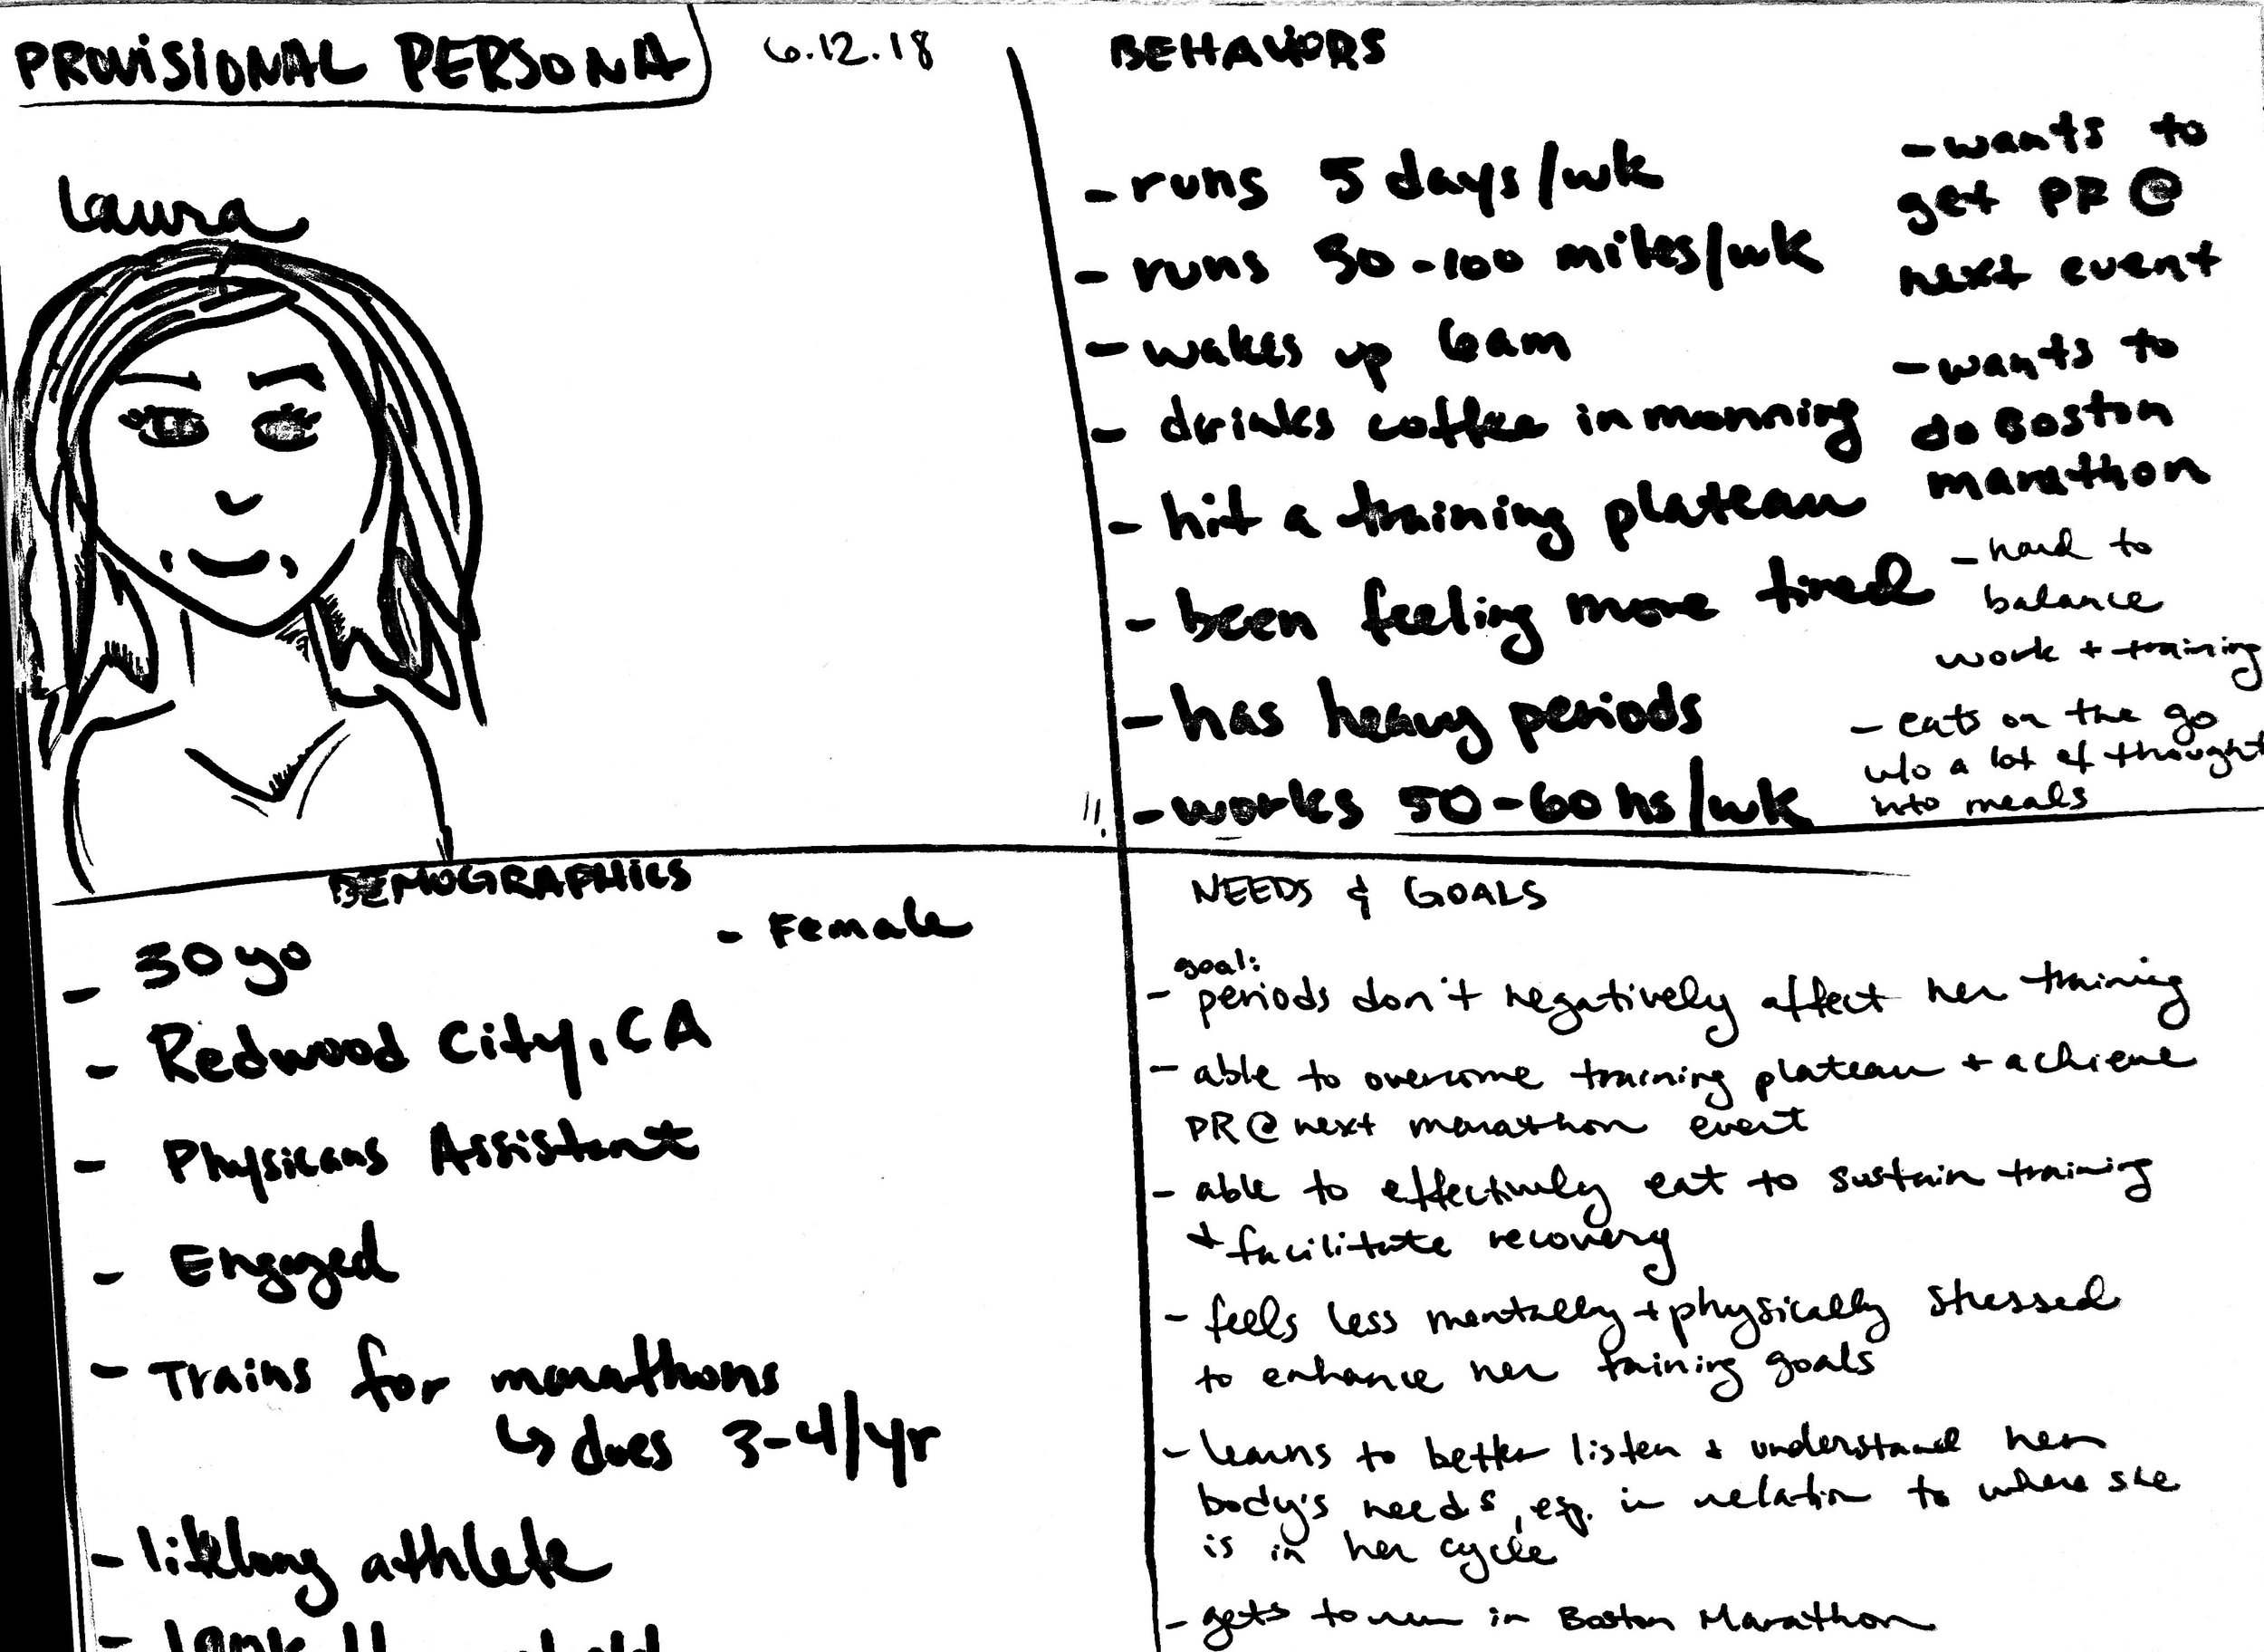 PROVISIONAL PERSONA
6.12.18
Laura
BEHAVIORS
- runs 5 days/wk
- runs 50-100 miles/wk
- wakes up 6am
- drinks coffee in morning
- hit a training plateau
- been feeling more tired
- has heavy periods
!! - works 50-60 hs/wk
- wants to
get PR @
next event
- wants to
do Boston
marathon
- hard to
balance
work + training
- eats on the go
w/o a lot of thought
into meals
DEMOGRAPHICS
- 30 yo
- Female
- Redwood City, CA
- Physicans Assistant
- Engaged
- Trains for marathons
↳ does 3-4/yr
- lifelong athlete
NEEDS & GOALS
goal:
- periods don't negatively affect her training
- able to overcome training plateau + achieve
PR @ next marathon event
- able to effectively eat to sustain training
+ facilitate recovery
- feels less mentally + physically stressed
to enhance her training goals
- learns to better listen + understand her
body's needs, esp. in relation to where she
is in her cycle
- gets to run in Boston Marathon